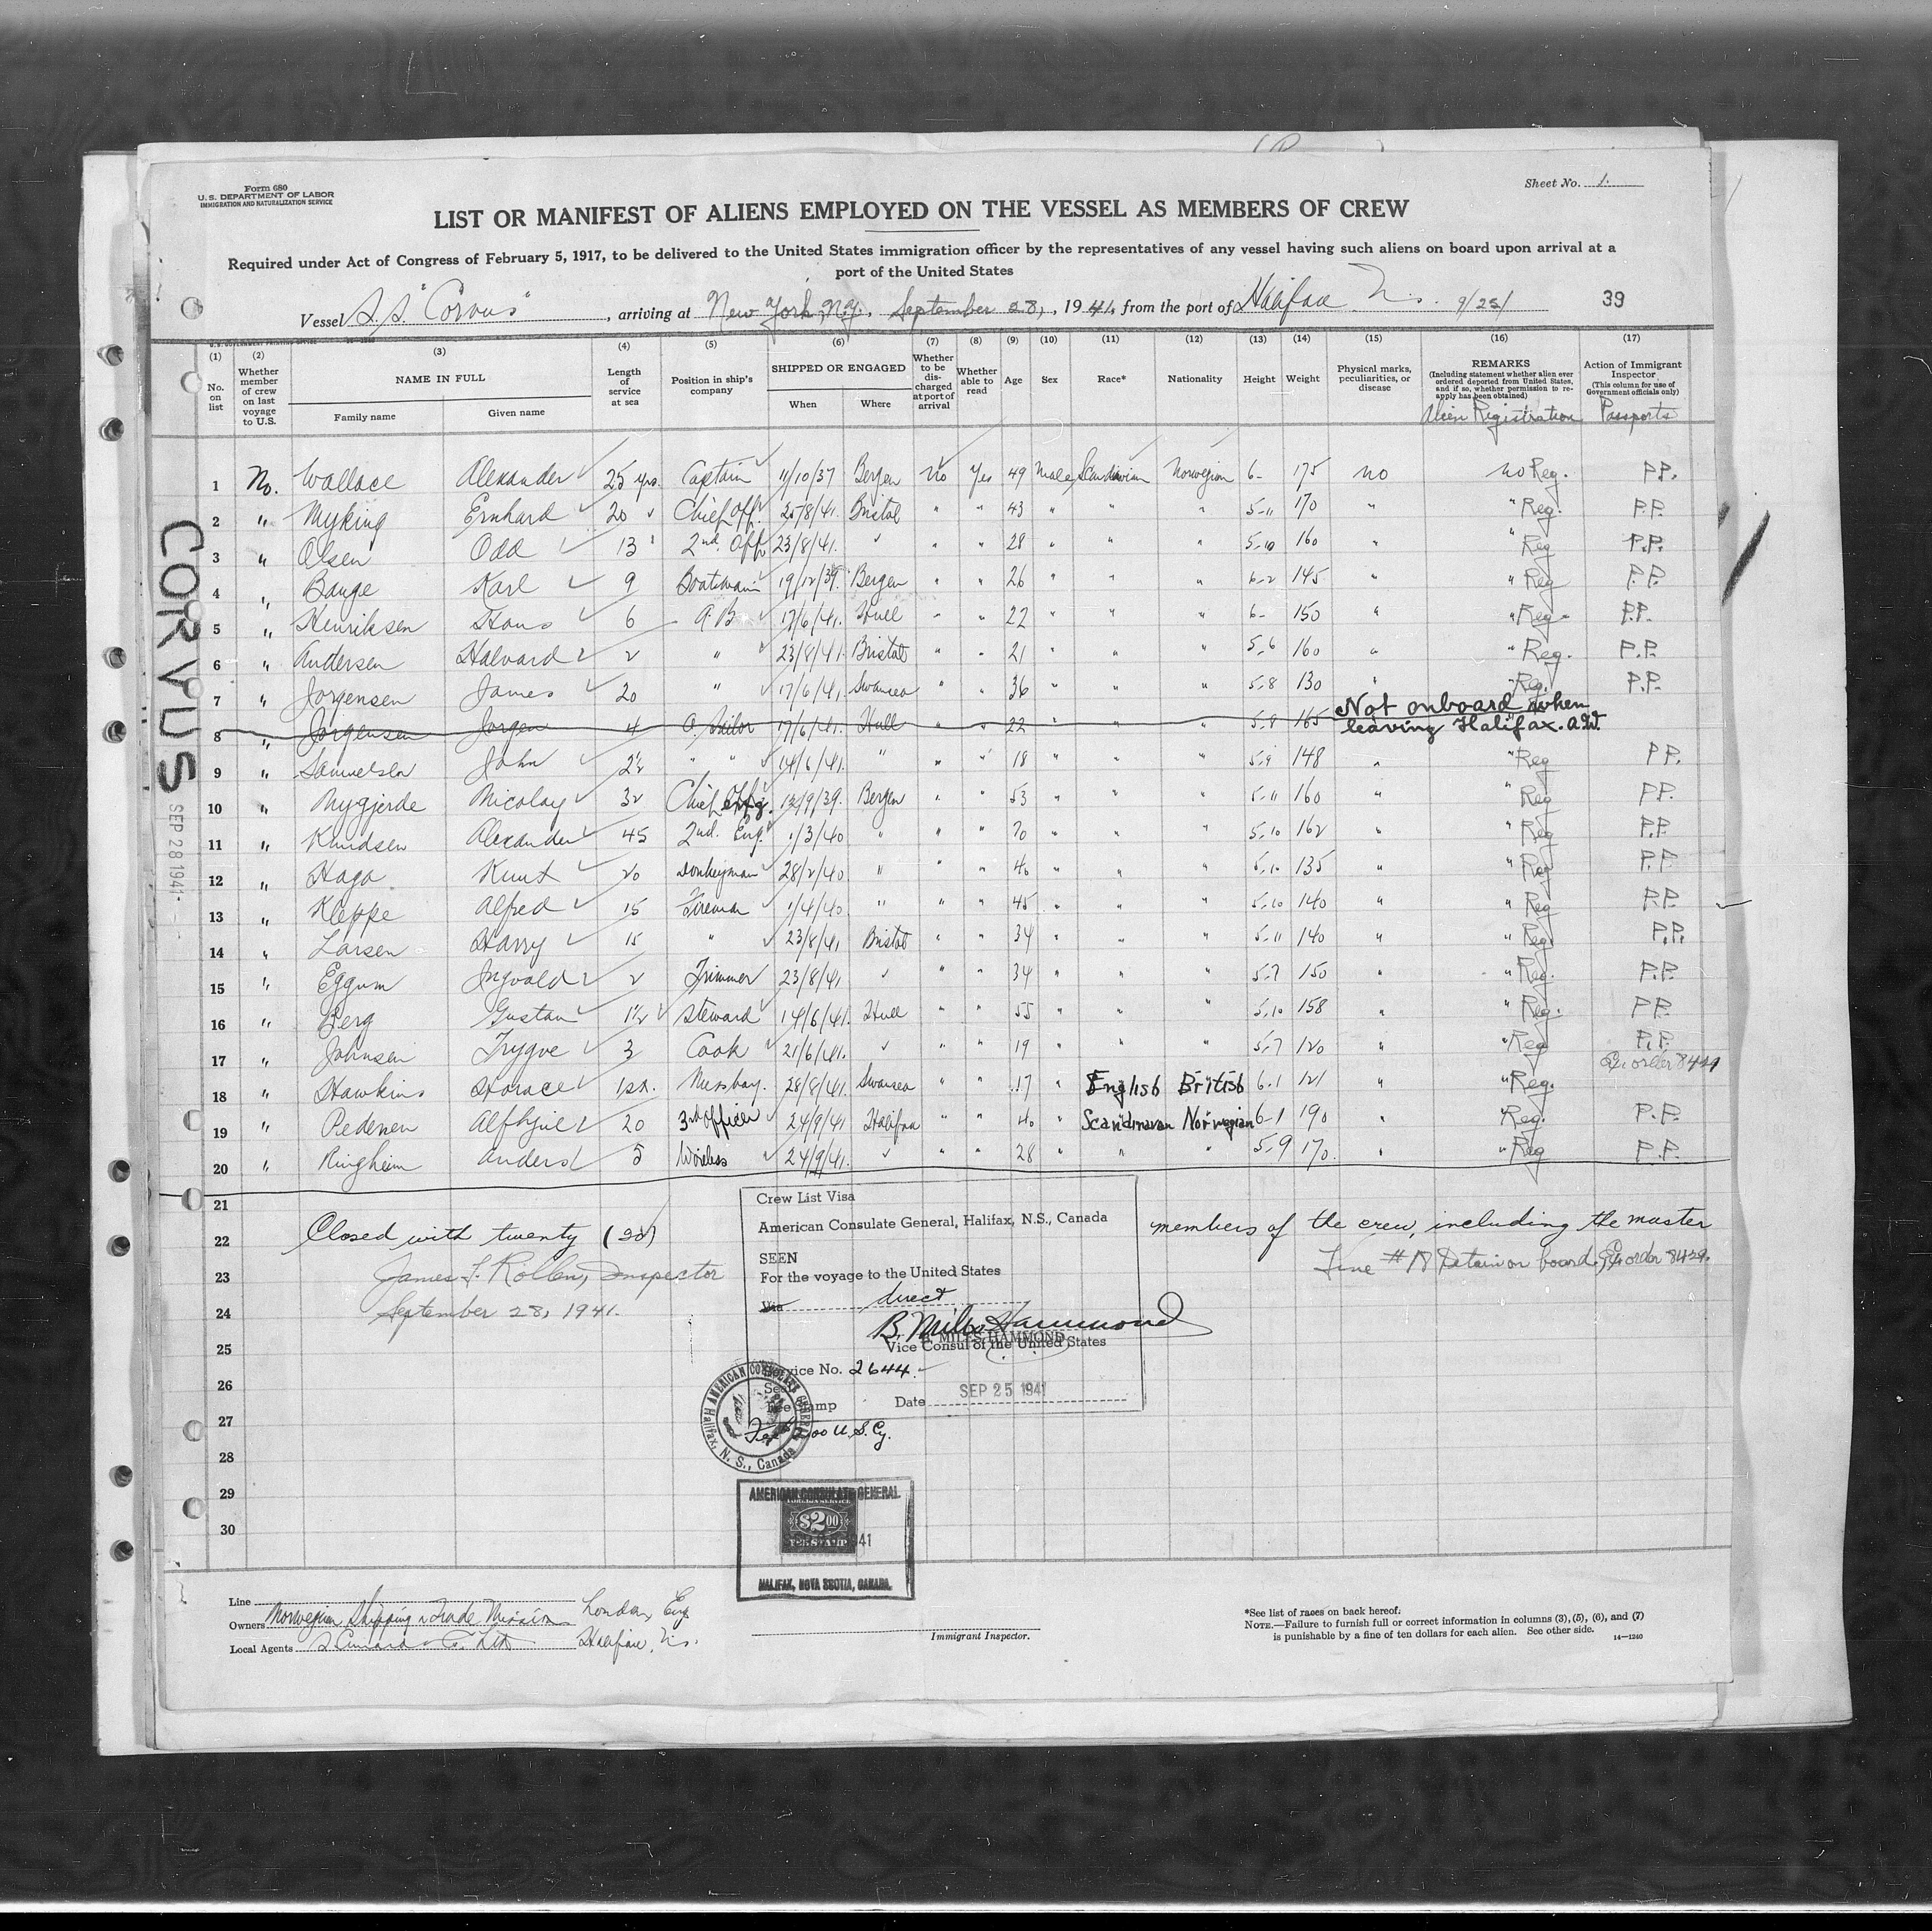 Form 680
U. S. DEPARTMENT OF LABOR
IMMIGRATION AND NATURALIZATION SERVICE
Sheet No. 1.
LIST OR MANIFEST OF ALIENS EMPLOYED ON THE VESSEL AS MEMBERS OF CREW
Required under Act of Congress of February 5, 1917, to be delivered to the United States immigration officer by the representatives of any vessel having such aliens on board upon arrival at a
port of the United States
Vessel S.S. "Corvus", arriving at New York, N.Y., September 28, 1941, from the port of Halifax N.S. 9/25/ 39
(1) (2) (3) (4) (5) (6) (7) (8) (9) (10) (11) (12) (13) (14) (15) (16) (17)
No. on list
Whether member of crew on last voyage to U.S.
NAME IN FULL
Family name
Given name
Length of service at sea
Position in ship's company
SHIPPED OR ENGAGED
When
Where
Whether to be discharged at port of arrival
Whether able to read
Age
Sex
Race*
Nationality
Height
Weight
Physical marks, peculiarities, or disease
REMARKS
(Including statement whether alien ever ordered deported from United States, and if so, whether permission to reapply has been obtained)
Alien Registration
Action of Immigrant Inspector
(This column for use of Government officials only)
Passports
1 No. Wallace Alexander 25 yrs. Captain 11/10/37 Bergen No Yes 49 Male Scandinavian Norwegian 6- 175 no no Reg. P.P.
2 " Myking Ernhard 20 Chief Off. 25/8/41. Bristol " " 43 " " " 5-11 170 " " Reg. P.P.
3 " Olsen Odd 13 2nd. Off 23/8/41. " " " 28 " " " 5-10 160 " " Reg P.P.
4 " Bauge Karl 9 Boatswain 19/12/39. Bergen " " 26 " " " 6-2 145 " " Reg P.P.
5 " Henriksen Hans 6 A.B 17/6/41. Hull " " 22 " " " 6- 150 " " Reg. P.P.
6 " Andersen Halvard 2 " 23/8/41 Bristol " " 21 " " " 5-6 160 " " Reg. P.P.
7 " Jorgensen James 20 " 17/6/41. Swansea " " 36 " " " 5-8 130 " " Reg. P.P.
8 " Jorgensen Jorgen 4 O. Sailor 17/6/41. Hull " " 22 " " " 5-8 165 Not onboard when
leaving Halifax. A.W.
9 " Samuelsen John 2½ " " 14/6/41. " " " 18 " " " 5-9 148 " " Reg P.P.
10 " Nygjerde Nicolay 32 Chief Eng. 12/9/39. Bergen " " 53 " " " 5-11 160 " " Reg P.P.
11 " Knudsen Alexander 45 2nd. Eng. 1/3/40 " " " 70 " " " 5-10 162 " " Reg P.P.
12 " Haga Knut 20 Donkeyman 28/2/40 " " 40 " " " 5-10 135 " " Reg P.P.
13 " Kleppe Alfred 15 Fireman 1/4/40 " " " 45 " " " 5-10 140 " " Reg P.P.
14 " Larsen Harry 15 " 23/8/41 Bristol " " 34 " " " 5-11 140 " " Reg. P.P.
15 " Eggum Ingvald 2 Trimmer 23/8/41 " " " 34 " " " 5-7 150 " " Reg. P.P.
16 " Berg Gustav 1½ Steward 14/6/41. Hull " " 55 " " " 5-10 158 " " Reg. P.P.
17 " Johnsen Trygve 3 Cook 21/6/41. " " " 19 " " " 5-7 120 " " Reg P.P.
Ex. order 8429
18 " Hawkins Horace 1st. Messboy. 28/8/41. Swansea " " 17 " English British 6-1 121 " " Reg.
19 " Pedersen 20 3rd officer 24/9/41 Halifax " " 40 " Scandinavan Norwegian 6-1 190 " " Reg. P.P.
20 " Ringheim Anders 5 Wireless 24/9/41. " " " 28 " " " 5-9 170. " " Reg P.P.
21
22 Closed with twenty (20) members of the crew, including the master
Line #18 Detain on board, Ex order 8429.
23 James J. Rollen, Inspector
24 September 28, 1941.
25
26
27
28
29
30
CORVUS
SEP 28 1941
Crew List Visa
American Consulate General, Halifax, N.S., Canada
SEEN
For the voyage to the United States
Via direct
B. Miles Hammond
B. MILES HAMMOND
Vice Consul of the United States
Service No. 2644.
Seal
Fee Stamp
Date SEP 25 1941
U.S. Cy.
AMERICAN CONSULATE GENERAL
Halifax, N. S., Canada
AMERICAN CONSULATE GENERAL
FOREIGN SERVICE
$2.00
FEE STAMP
HALIFAX, NOVA SCOTIA, CANADA.
Line
Owners Norwegian Shipping & Trade Mission London, Eng
Local Agents S Cunard & Co. Ltd Halifax, N.S.
Immigrant Inspector.
*See list of races on back hereof.
NOTE.—Failure to furnish full or correct information in columns (3), (5), (6), and (7)
is punishable by a fine of ten dollars for each alien. See other side. 14—1240